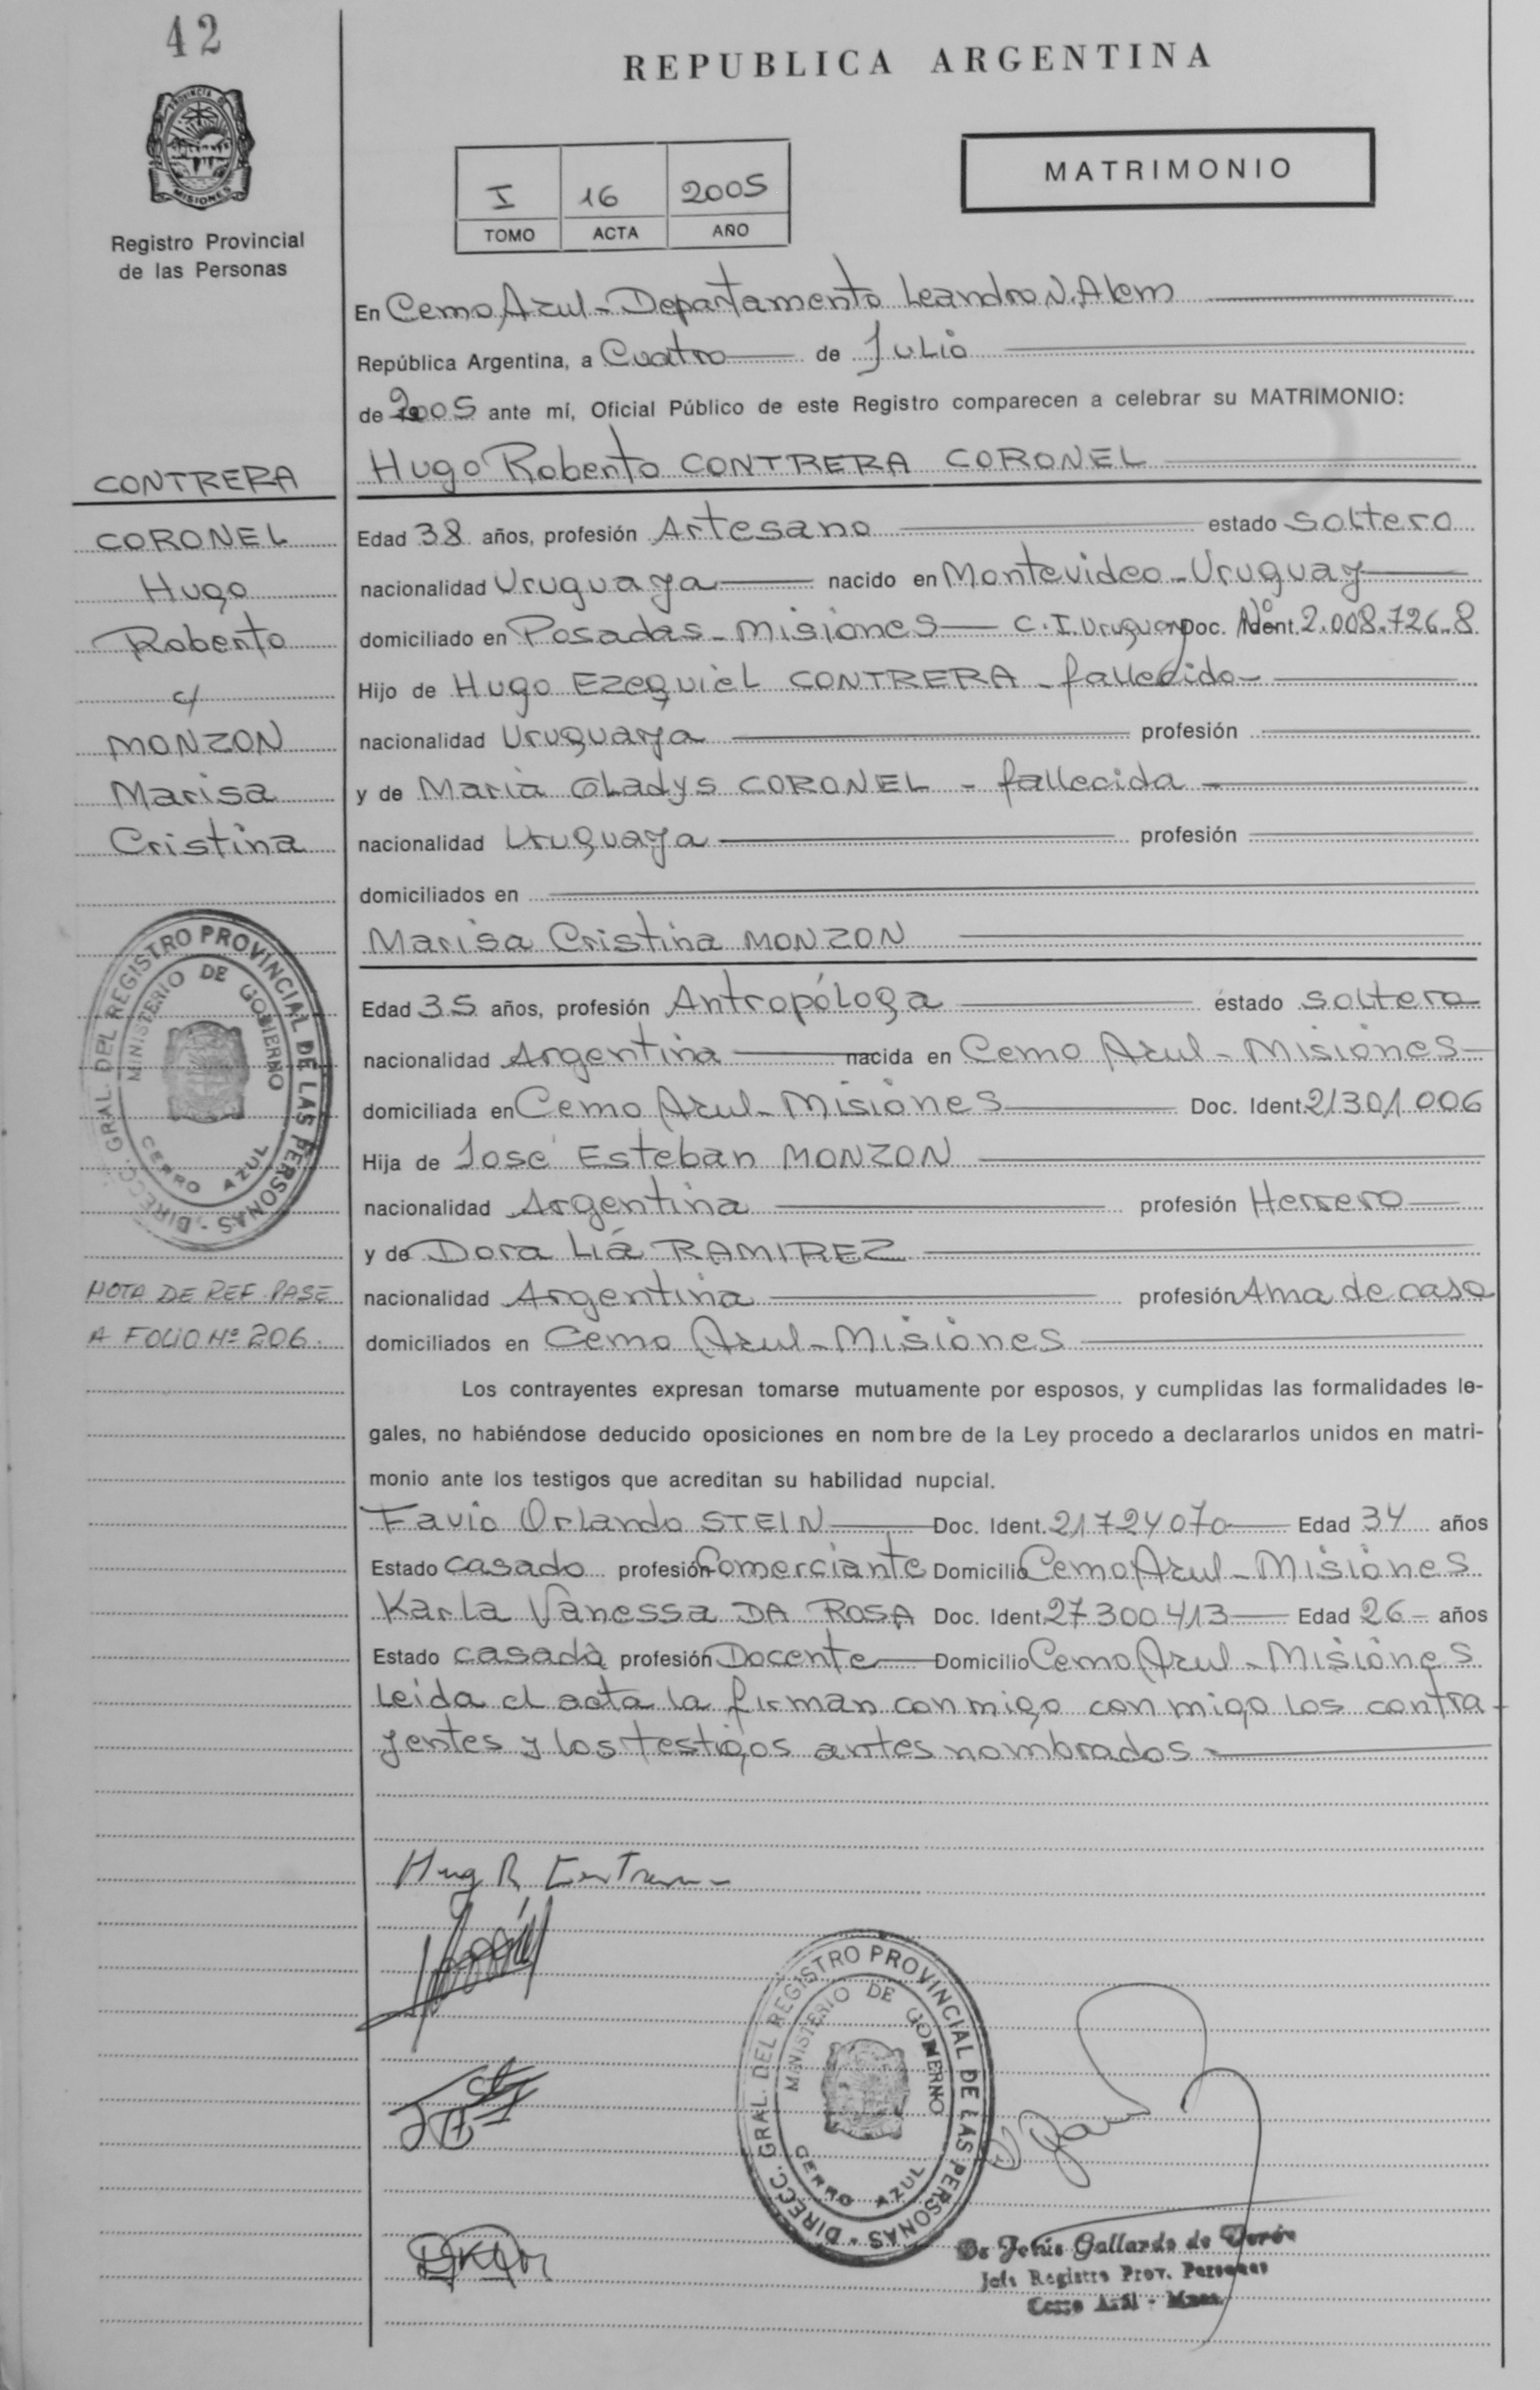 42
REPUBLICA ARGENTINA
PROVINCIA DE
MISIONES
Registro Provincial
de las Personas
I 16 2005
TOMO ACTA AÑO
MATRIMONIO
En Cerro Azul - Departamento Leandro N. Alem
República Argentina, a Cuatro de Julio
de 2005 ante mí, Oficial Público de este Registro comparecen a celebrar su MATRIMONIO:
Hugo Roberto CONTRERA CORONEL
CONTRERA
CORONEL
Hugo
Roberto
c/
MONZON
Marisa
Cristina
Edad 38 años, profesión Artesano estado soltero
nacionalidad Uruguaya nacido en Montevideo - Uruguay
domiciliado en Posadas - Misiones - C.I. Uruguay Doc. Ident. Nº 2.008.726-8
Hijo de Hugo Ezequiel CONTRERA - fallecido -
nacionalidad Uruguaya profesión
y de Maria Gladys CORONEL - fallecida -
nacionalidad Uruguaya profesión
domiciliados en
Marisa Cristina MONZON
Edad 35 años, profesión Antropóloga estado soltera
nacionalidad Argentina nacida en Cerro Azul - Misiones
domiciliada en Cerro Azul - Misiones Doc. Ident. 21301006
Hija de José Esteban MONZON
nacionalidad Argentina profesión Herrero
y de Dora Lia RAMIREZ
nacionalidad Argentina profesión Ama de casa
domiciliados en Cerro Azul - Misiones
DIRECC. GRAL. DEL REGISTRO PROVINCIAL DE LAS PERSONAS
MINISTERIO DE GOBIERNO
CERRO AZUL
NOTA DE REF. PASE
A FOLIO Nº 206.
Los contrayentes expresan tomarse mutuamente por esposos, y cumplidas las formalidades le-
gales, no habiéndose deducido oposiciones en nombre de la Ley procedo a declararlos unidos en matri-
monio ante los testigos que acreditan su habilidad nupcial.
Favio Orlando STEIN Doc. Ident. 21724070 Edad 34 años
Estado casado profesión Comerciante Domicilio Cerro Azul - Misiones
Karla Vanessa DA ROSA Doc. Ident. 27300413 Edad 26 años
Estado casada profesión Docente Domicilio Cerro Azul - Misiones
Leida el acta la firman conmigo conmigo los contra-
yentes y los testigos antes nombrados.
Hug R Contrera
DIRECC. GRAL. DEL REGISTRO PROVINCIAL DE LAS PERSONAS
MINISTERIO DE GOBIERNO
CERRO AZUL
De Jesús Gallardo de
Jefe Registro Prov. Personas
Cerro Azul - Mnes.